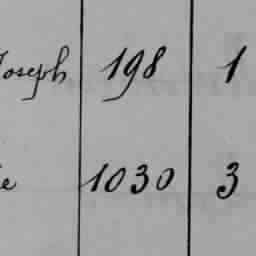 Joseph 198 1
e 1030 3